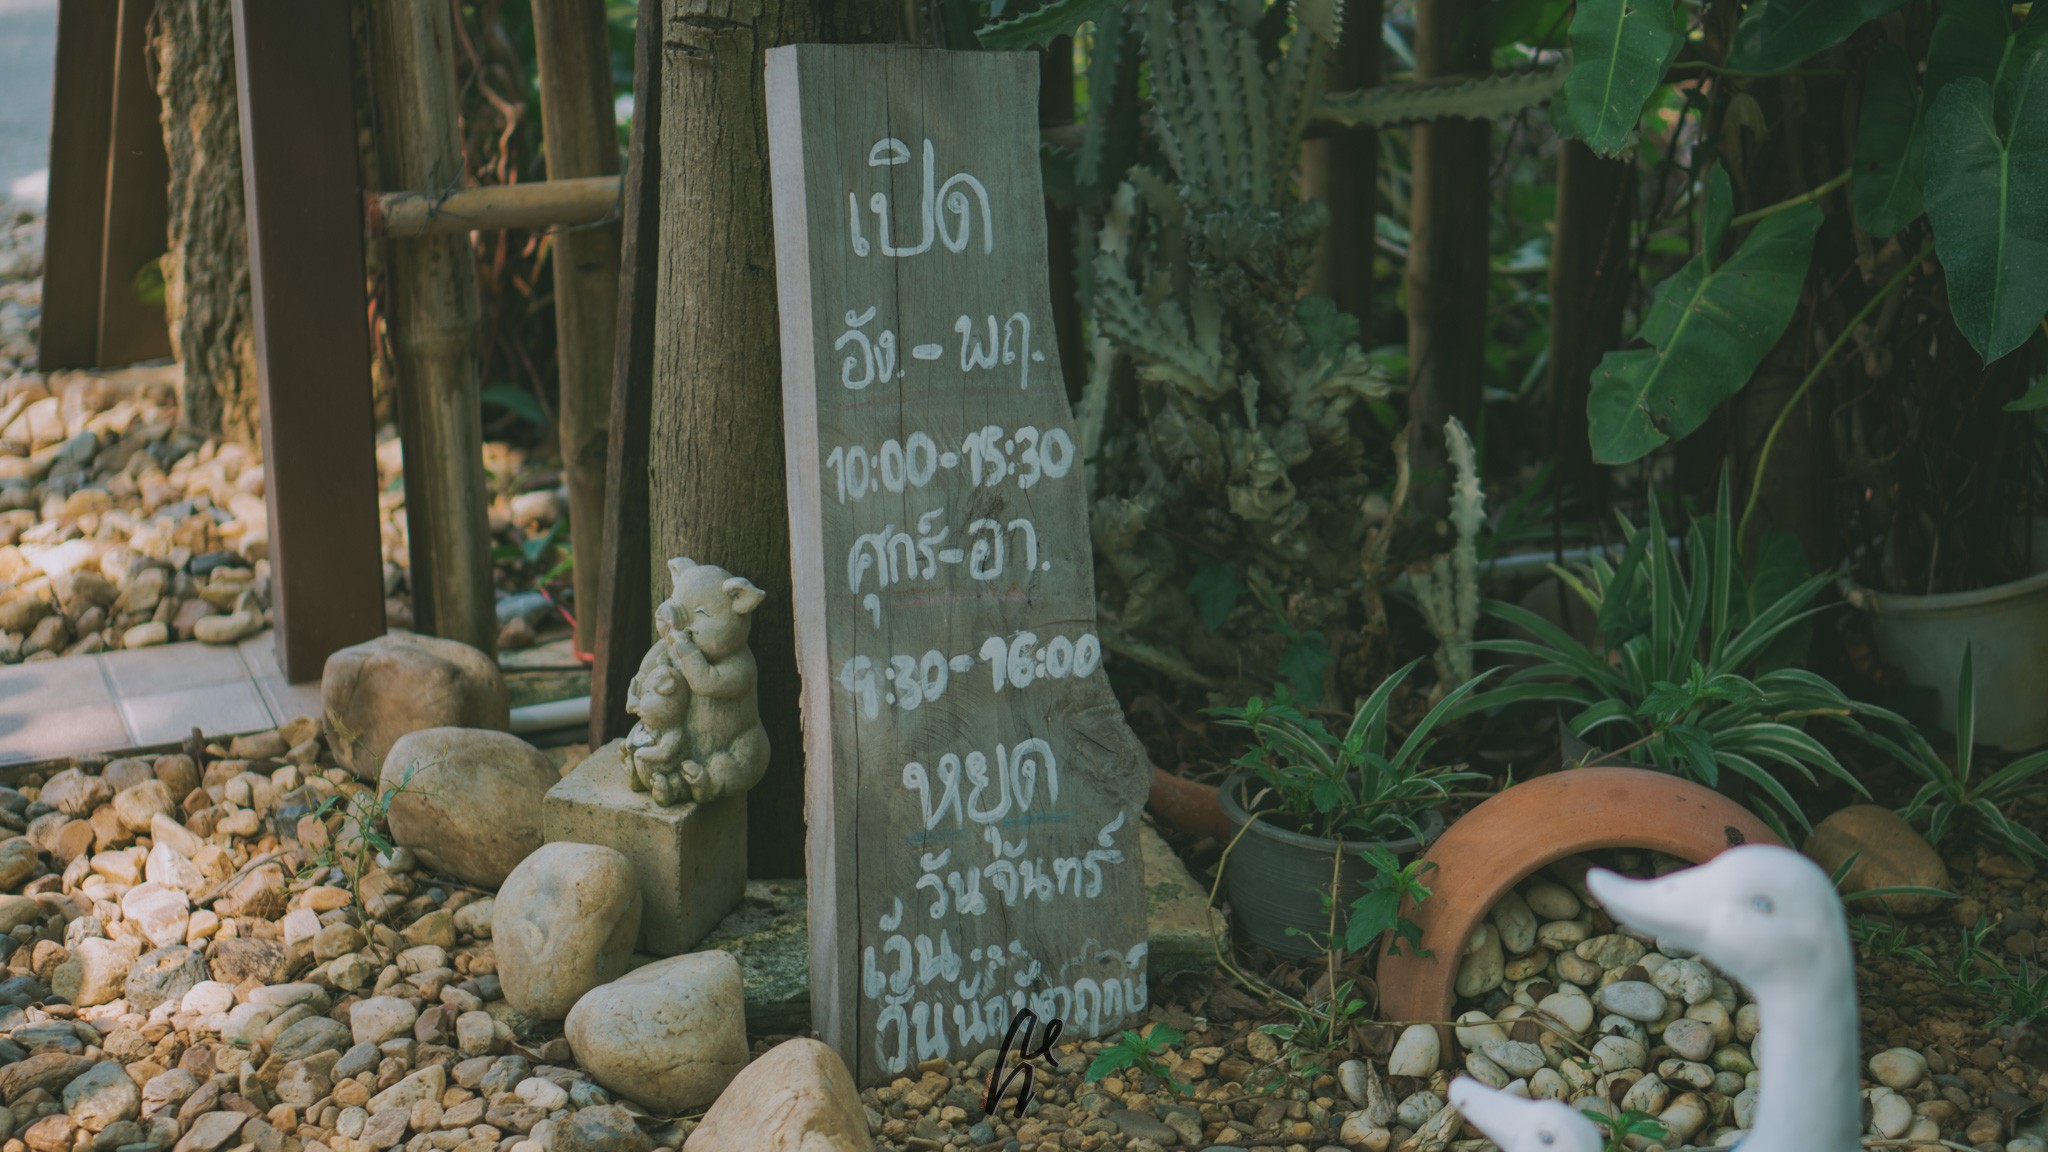 เปิด
อัง. - พฤ.
10:00-15:30
ศุกร์-อา.
9:30-16:00
หยุด
วันจันทร์
เว้น
วันนักขัตฤกษ์